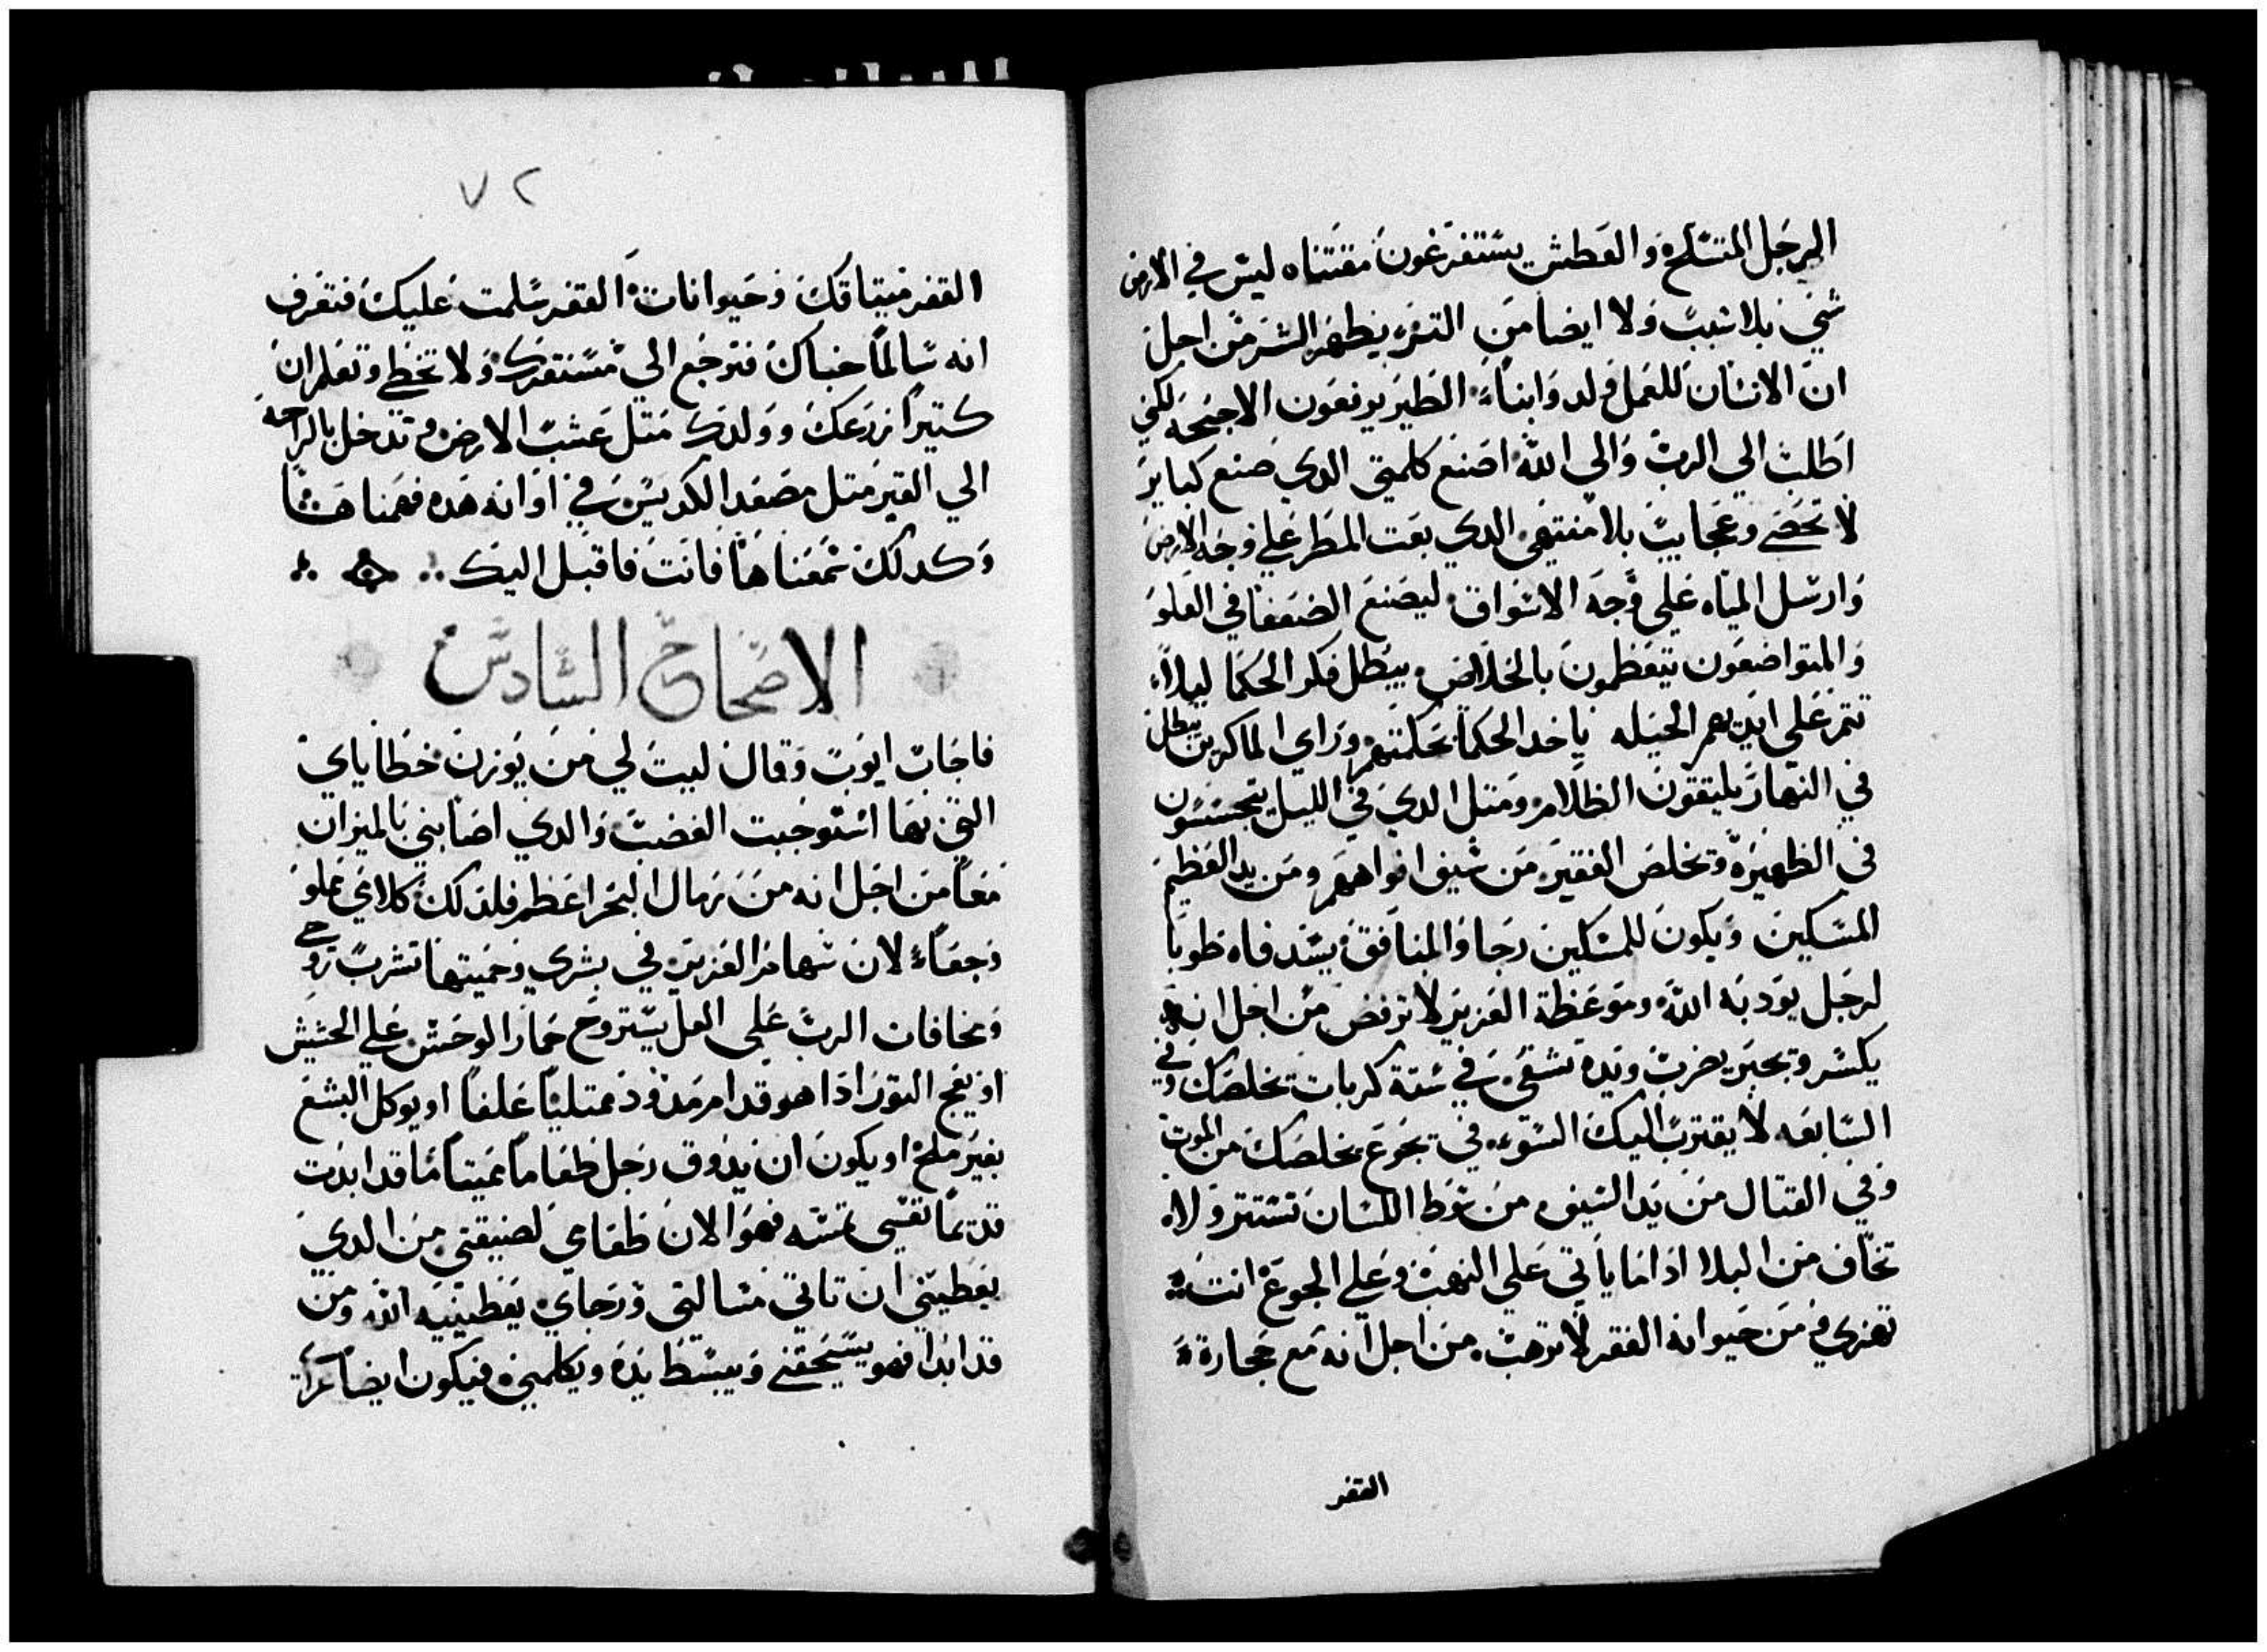 الرجل المتسلح والعطش يستفرغون مقتناه ليس في الارض
شي بلا سبب ولا ايضا من التري يظهر الشر من اجل
ان الانسان للعمل ولد وابناء الطير يرفعون الاجنحه لكني
اطلب الي الرب والي الله اضع كلمتي الدي صنع كباير
لا تحصي وعجايب بلا منتهي الدي بعت المطر علي وجه الارض
وارسل المياه علي وجه الاسواق ليصنع الضعفا في العلو
والمتواضعون يتعظمون بالخلاص يبطل فكر الحكما ليلا
تتم علي ايديهم الحيله ياخد الحكما بحكمتهم وراي الماكرين يبطل
في النهار يلتقون الظلام ومتل الدي في الليل يتجسسون
في الظهيرة وتخلص الفقير من سيف افواههم ومن يد العظيم
المسكين ويكون للمسكين رجا والمنافق يسد فاه طوبا
لرجل يودبه الله وموعظة العزيز لا ترفض من اجل انه
يكسر ويجبر يضرب ويده تشفي في ستة كربات تخلصك وفي
السابعه لا يقترب اليك السوء في جوع يخلصك من الموت
وفي القتال من يد السيف من سوط اللسان تستتر ولا
تخاف من البلا ادا ما ياتي علي النهب وعلي الجوع انت
تهزي ومن حيوانه القفر لا ترهب من اجل انه مع حجارة
القفر
٧٢
القفر ميتاقك وحيوانات القفر سلمت عليك فتعرف
انه سالما خباك فترجع الي مستقرك ولا تخطي وتعلم ان
كتيرا زرعك وولدك متل عشب الارض وتدخل بالراحة
الي القبر متل مصعد الكديس في اوانه هده فهمنا هشا
وكدلك سمعناها فانت فاقبل اليك
الاصحاح السادس
فاجاب ايوب وقال ليت لي من يوزن خطاياي
التي بها استوجبت الغضب والدي اصابني بالميزان
معا من اجل انه من رمال البحر اعظم فلدلك كلامي مملو
وجعا لان سهام العزيز في بشري وحميتها تشرب روحي
ومخافات الرب علي العل يستروح حمار الوحش علي الحشيش
او يعج التور ادا هو قدام مدود ممتليا علفا او يوكل البشع
بغير ملح او يكون ان يدوق رجل طعاما مميتا ما قد ابدت
قديما نفسي تمسه فهو الان طعامي لضيقتي من الدي
يعطيني ان تاتي مسالتي ورجاي يعطينيه الله ومن
قد ابدا فهو يسحقني ويبسط يده ويكلمني فيكون ايضا عزاي